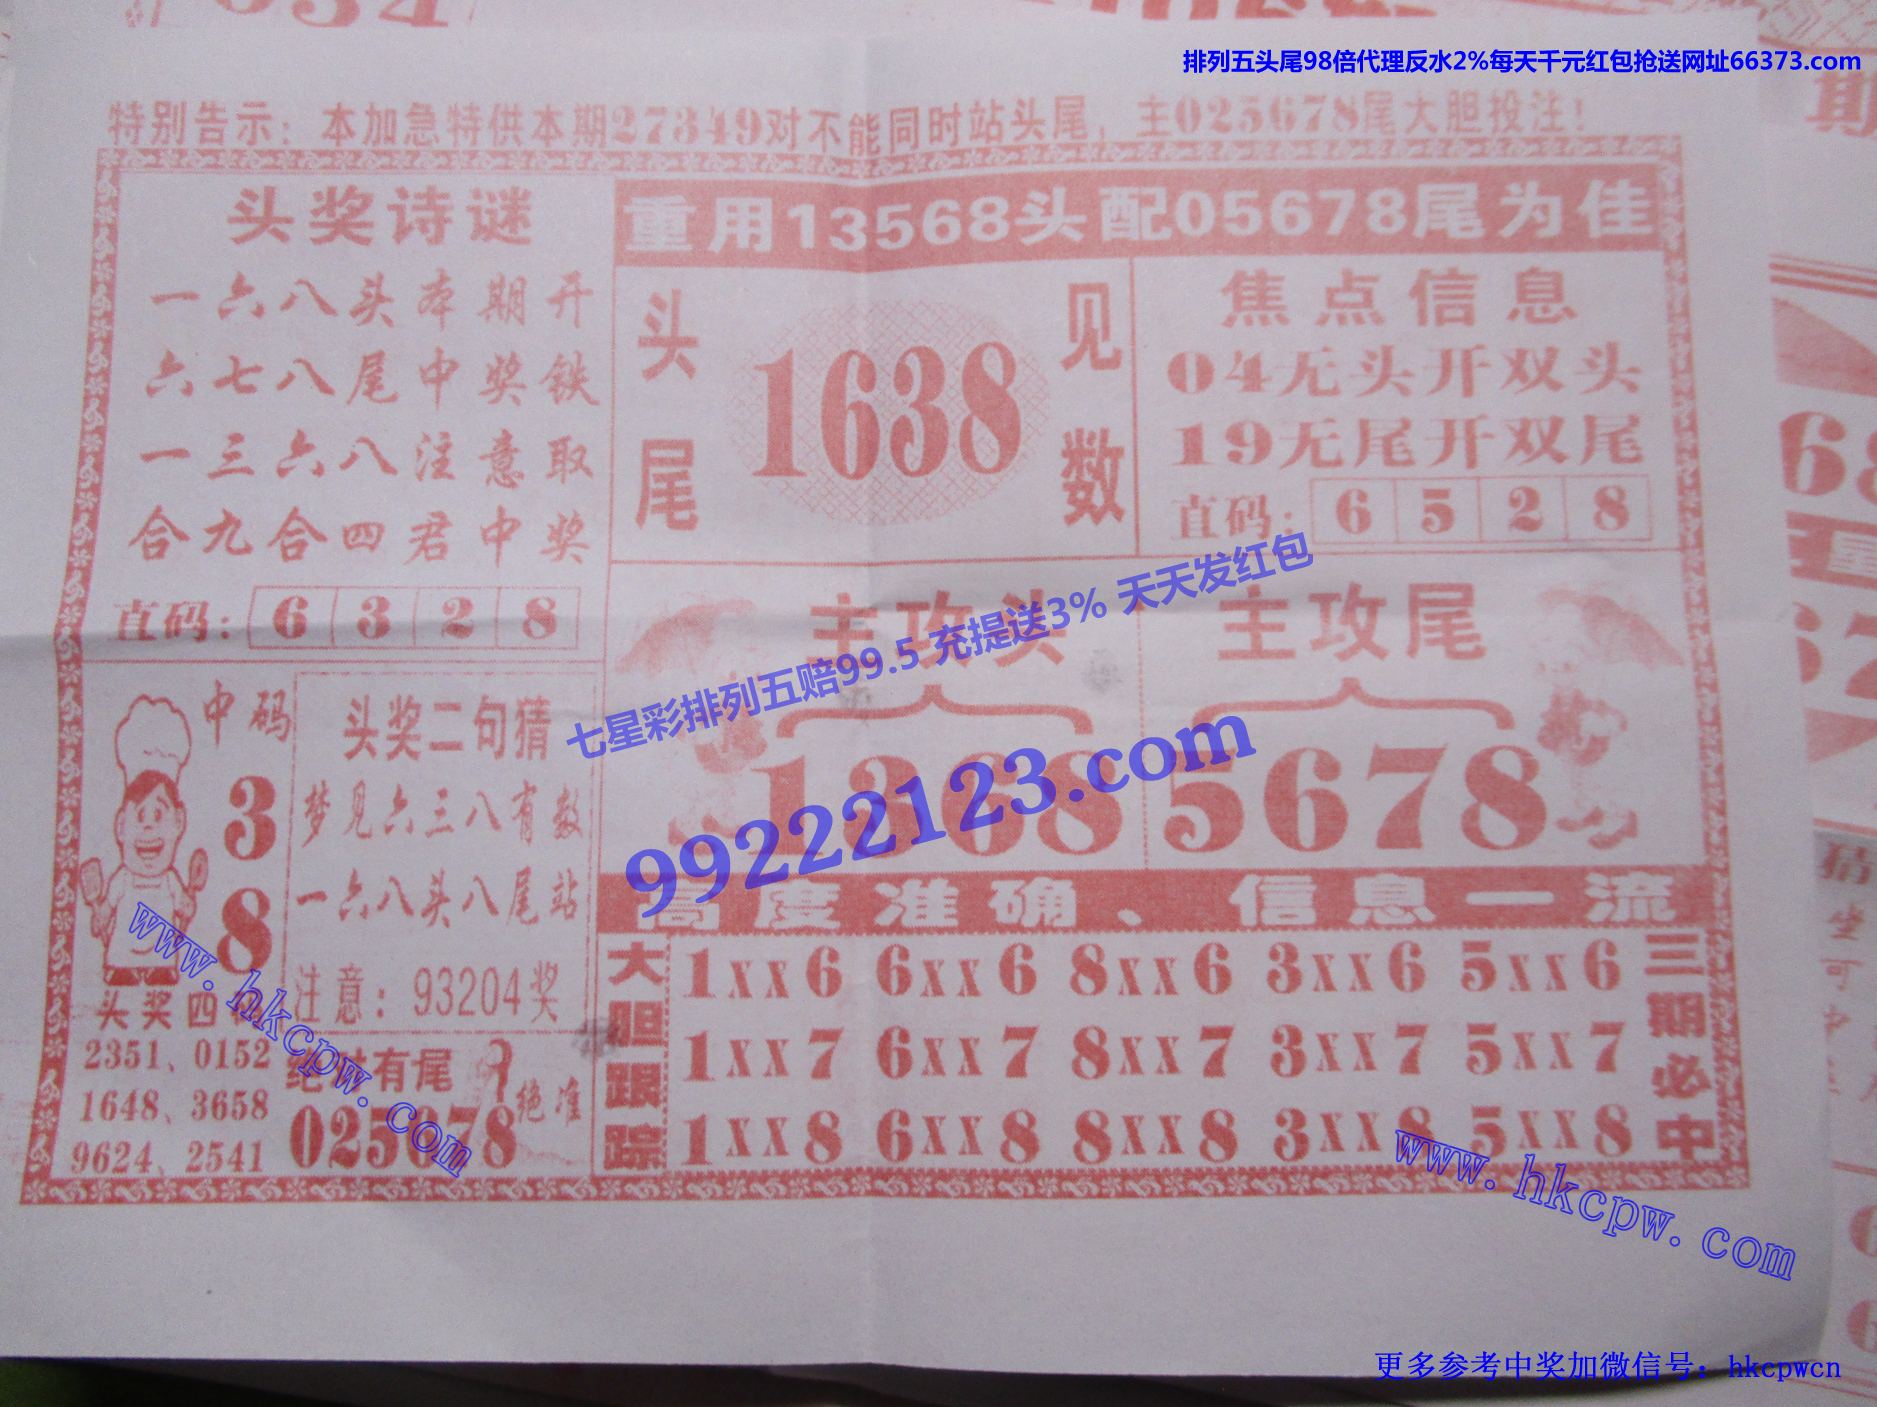 排列五头尾98倍代理反水2%每天千元红包抢送网址66373.com
特别告示：本加急特供本期27349对不能同时站头尾，主025678尾大胆投注！
头奖诗谜
一六八头本期开
六七八尾中奖铁
一三六八注意取
合九合四君中奖
直码：6 3 2 8
重用13568头配05678尾为佳
头尾
1638
见数
焦点信息
04无头开双头
19无尾开双尾
直码：6 5 2 8
主攻头
1368
主攻尾
5678
七星彩排列五赔99.5 充提送3% 天天发红包
99222123.com
中码
3
8
头奖二句猜
梦见六三八有数
一六八头八尾站
注意：93204奖
头奖四
2351、0152
1648、3658
9624、2541
绝对有尾
025678
绝准
高度准确、信息一流
大胆跟踪
1XX6 6XX6 8XX6 3XX6 5XX6
1XX7 6XX7 8XX7 3XX7 5XX7
1XX8 6XX8 8XX8 3XX8 5XX8
三期必中
www.hkcpw.com
www.hkcpw.com
期
猜
更多参考中奖加微信号：hkcpwcn